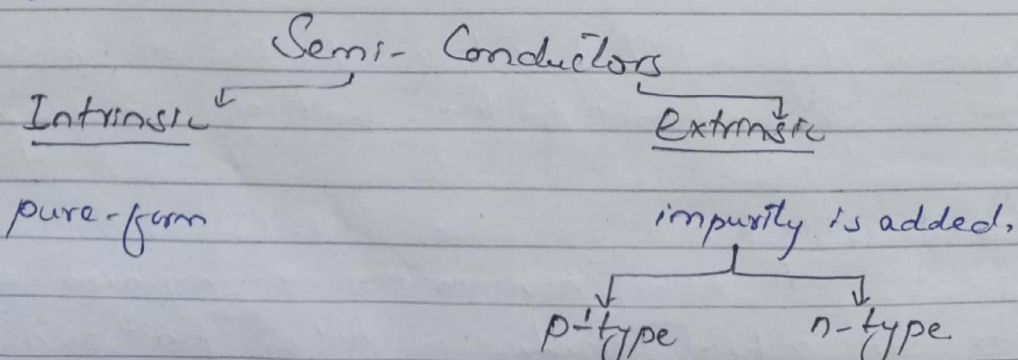 Semi-Conductors
Intrinsic extrinsic
pure-form impurity is added.
p-type n-type